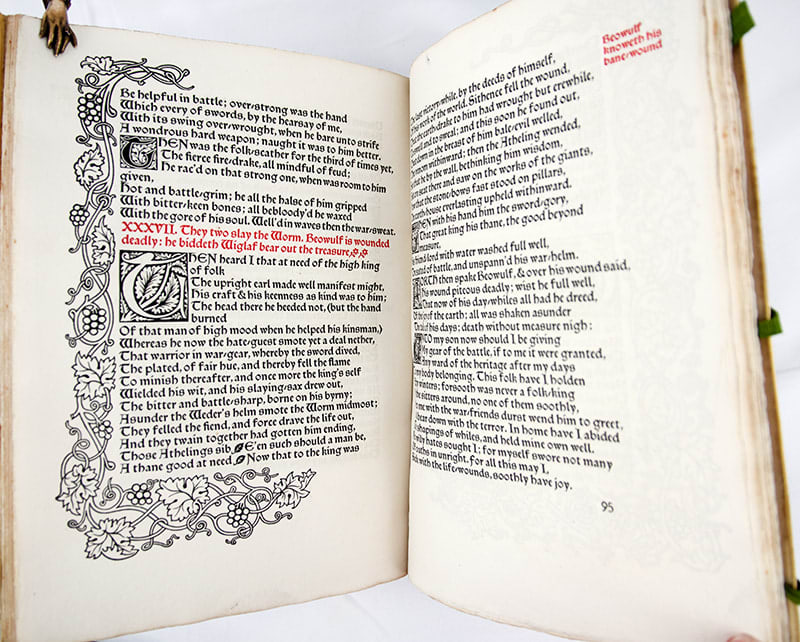 Be helpful in battle; over-strong was the hand
Which every of swords, by the hearsay of me,
With its swing over-wrought, when he bare unto strife
A wondrous hard weapon; naught it was to him better.
THEN was the folk-scather for the third of times yet,
The fierce fire-drake, all mindful of feud;
He rac'd on that strong one, when was room to him
given,
Hot and battle-grim; he all the halse of him gripped
With bitter-keen bones; all bebloody'd he waxed
With the gore of his soul. Well'd in waves then the war-sweat.
XXXVII. They two slay the Worm. Beowulf is wounded
deadly: he biddeth Wiglaf bear out the treasure
THEN heard I that at need of the high king
of folk
The upright earl made well manifest might,
His craft & his keenness as kind was to him;
The head there he heeded not, (but the hand
burned
Of that man of high mood when he helped his kinsman,)
Whereas he now the hate-guest smote yet a deal nether,
That warrior in war-gear, whereby the sword dived,
The plated, of fair hue, and thereby fell the flame
To minish thereafter, and once more the king's self
Wielded his wit, and his slaying-sax drew out,
The bitter and battle-sharp, borne on his byrny;
Asunder the Weder's helm smote the Worm midmost;
They felled the fiend, and force drave the life out,
And they twain together had gotten him ending,
Those Athelings sib. E'en such should a man be,
A thane good at need. Now that to the king was
Beowulf
knoweth his
bane-wound
last victory-while, by the deeds of himself,
work of the world. Sithence fell the wound,
the earth-drake to him had wrought but erewhile,
swell and to sweal; and this soon he found out,
down in the breast of him bale-evil welled,
venom withinward; then the Atheling wended,
he by the wall, bethinking him wisdom,
seat there and saw on the works of the giants,
that the stone-bows fast stood on pillars,
earth-house everlasting upheld withinward.
THEN with his hand him the sword-gory,
That great king his thane, the good beyond
measure,
friend-lord with water washed full well,
of battle, and unspann'd his war-helm.
FORTH then spake Beowulf, & over his wound said,
His wound piteous deadly; wist he full well,
That now of his day-whiles all had he dreed,
of the earth; all was shaken asunder
of his days; death without measure nigh:
UNTO my son now should I be giving
My gear of the battle, if to me it were granted,
ward of the heritage after my days
my body belonging. This folk have I holden
winters; forsooth was never a folk-king
the sitters around, no one of them soothly,
me with the war-friends durst wend him to greet,
bear down with the terror. In home have I abided
shapings of whiles, and held mine own well.
wily hates sought I; for myself swore not many
oaths in unright. For all this may I,
with the life-wounds, soothly have joy.
95